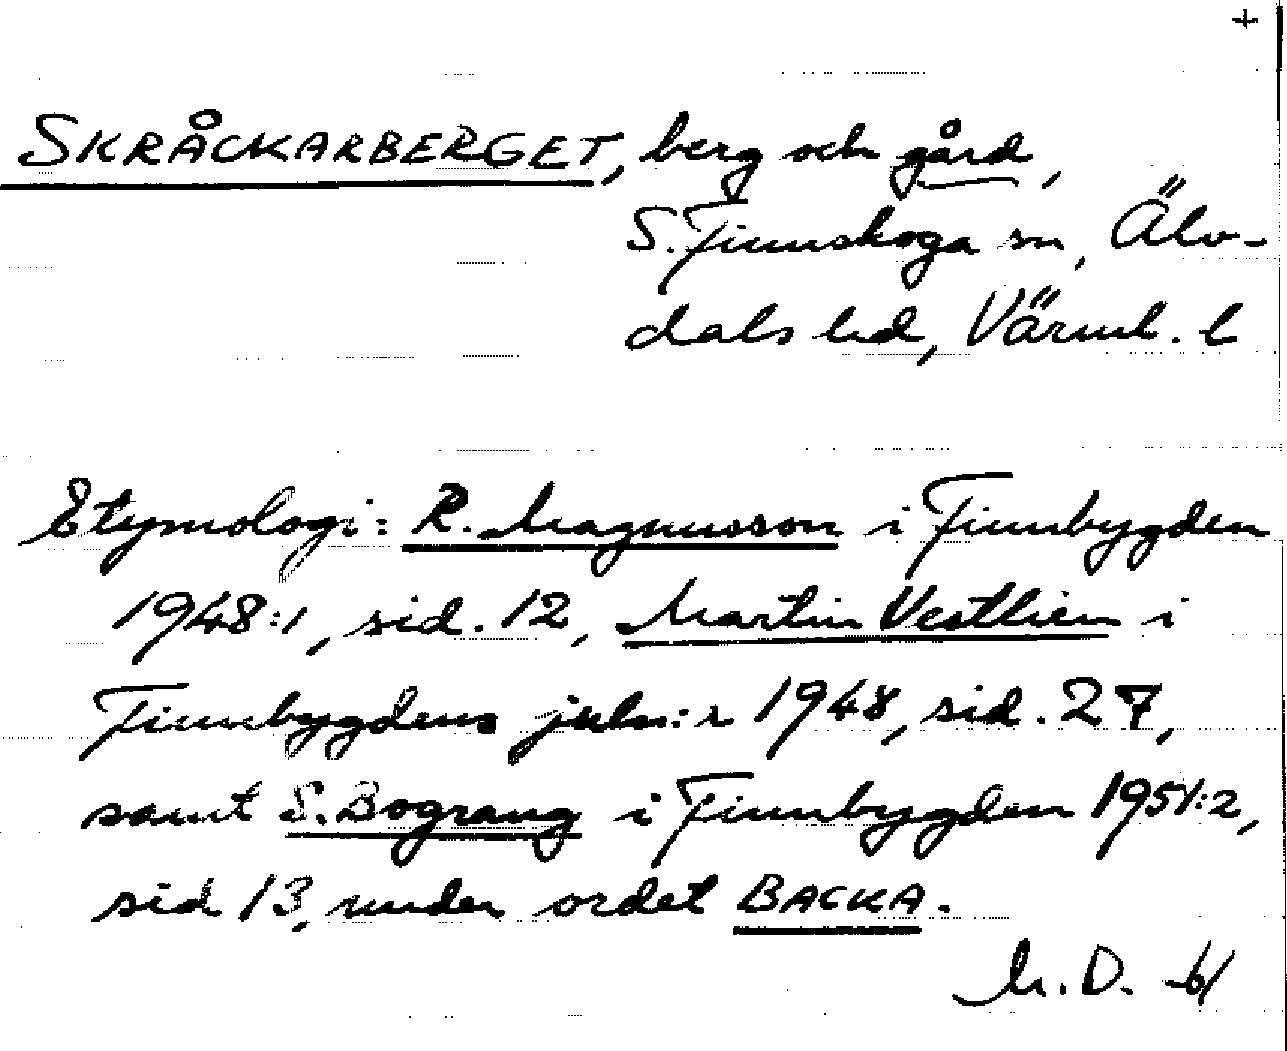 +
SKRÅCKARBERGET, berg och gård,
S. Finnskoga sn, Älv-
dals hd, Värml. l
Etymologi: R. Magnusson i Finnbygden
1948:1, sid. 12, Martin Vestlien i
Finnbygdens juln:r 1948, sid. 27,
samt S. Bograng i Finnbygden 1951:2,
sid 13, under ordet BACKA.
M.D. -61